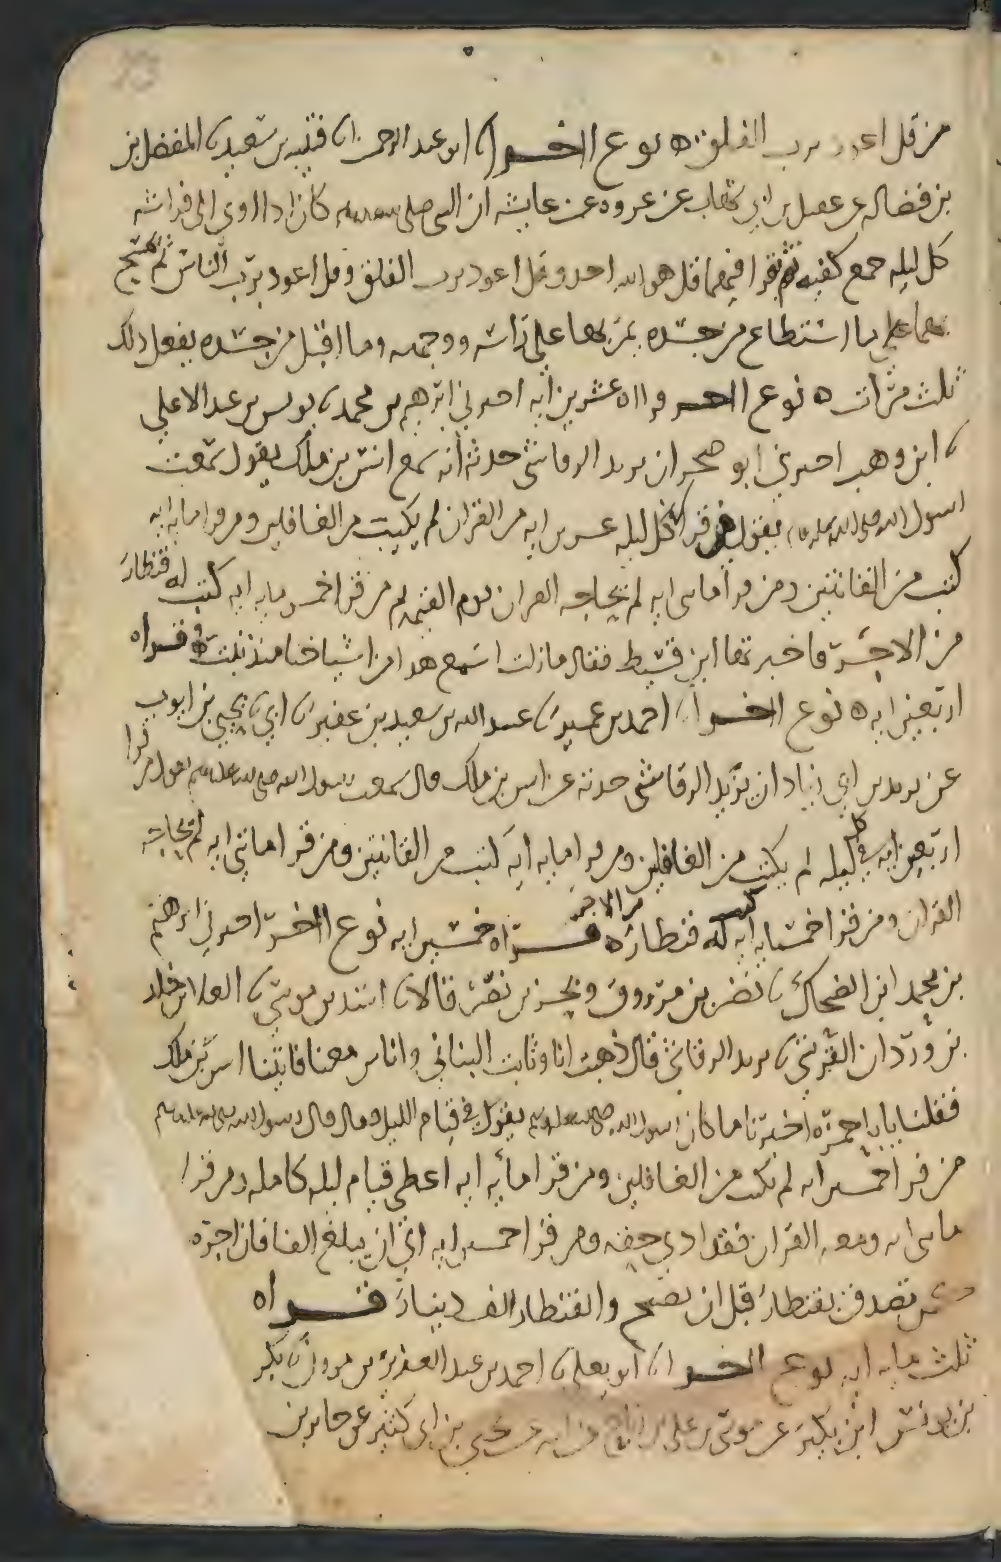 من قل اعوذ برب الفلق ه نوع اخر انا ابو عبد الرحمن نا قتيبه بن سعيد نا المفضل بن
بن فضاله عن عقيل بن ابي شهاب عن عروه عن عايشه ان النبي صلى الله عليه كان اذا اوى الى فراشه
كل ليله جمع كفيه ثم يقرا فيهما قل هو الله احد وقل اعوذ برب الفلق وقل اعوذ برب الناس ثم يمسح
بهما على ما استطاع من جسده يمر بهما على راسه ووجهه وما اقبل من جسده يفعل ذلك
ثلث مرات ه نوع اخر قراه عشرين ايه اخبرني ابرهيم بن محمد نا يونس بن عبد الاعلى
نا ابن وهب اخبرني ابو صخر ان يزيد الرقاشي حدثه انه سمع انس بن ملك يقول سمعت
رسول الله صلى الله عليه يقول من قرا كل ليله عشرين ايه من القران لم يكتب من الغافلين ومن قرا مايه ايه
كتب من القانتين ومن قرا مايتي ايه لم يحاجه القران يوم القيمه ومن قرا خمس مايه ايه كتب له قنطار
من الاجر فاخبرتها ابن قسيط فقال ما زلت اسمع هذا من اشياخنا منذ ثلث ه قراه
اربعين ايه ه نوع اخر انا احمد بن عمير نا عبد الله بن سعيد بن عفير نا ابي نا يحيى بن ايوب
عن يزيد بن ابي زياد ان يزيد الرقاشي حدثه عن انس بن ملك قال سمعت رسول الله صلى الله عليه وسلم يقول من قرا
اربعين ايه في كل ليله لم يكتب من الغافلين ومن قرا مايه ايه كتب من القانتين ومن قرا مايتي ايه لم يحاجه
القران ومن قرا خمسمايه ايه كتب له قنطار من الاجر ه قراه خمسين ايه نوع اخر اخبرني ابرهيم
بن محمد ابن الضحاك نا نصر بن مرزوق وبحر بن نصر قالا نا اسد بن موسى نا العلا بن خلد
بن وردان القرشي نا يزيد الرقاشي قال ذهبت انا وثابت البناني واناس معنا فاتينا انس بن ملك
فقلنا يابا حمزه اخبرنا ما كان رسول الله صلى الله عليه وسلم يقول في قيام الليل قال قال رسول الله صلى الله عليه وسلم
من قرا خمسين ايه لم يكتب من الغافلين ومن قرا مايه ايه اعطى قيام ليله كامله ومن قرا
مايتي ايه ومعه القران فقد ادى حقه ومن قرا خمسمايه ايه الى ان يبلغ الفا فان اجره
كمن تصدق بقنطار قبل ان يصبح والقنطار الف دينار قراه
ثلث مايه ايه نوع اخر انا ابو يعلى نا احمد بن عبد العزيز بن مروان نا بكر
بن يونس ابن بكير عن موسى بن علي بن رباح عن ابيه عن يحيى بن ابي كثير عن جابر بن